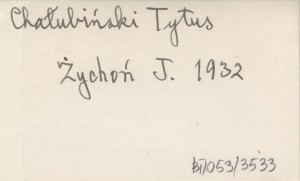 Chałubiński Tytus
Żychoń J. 1932
BJ/053/3533